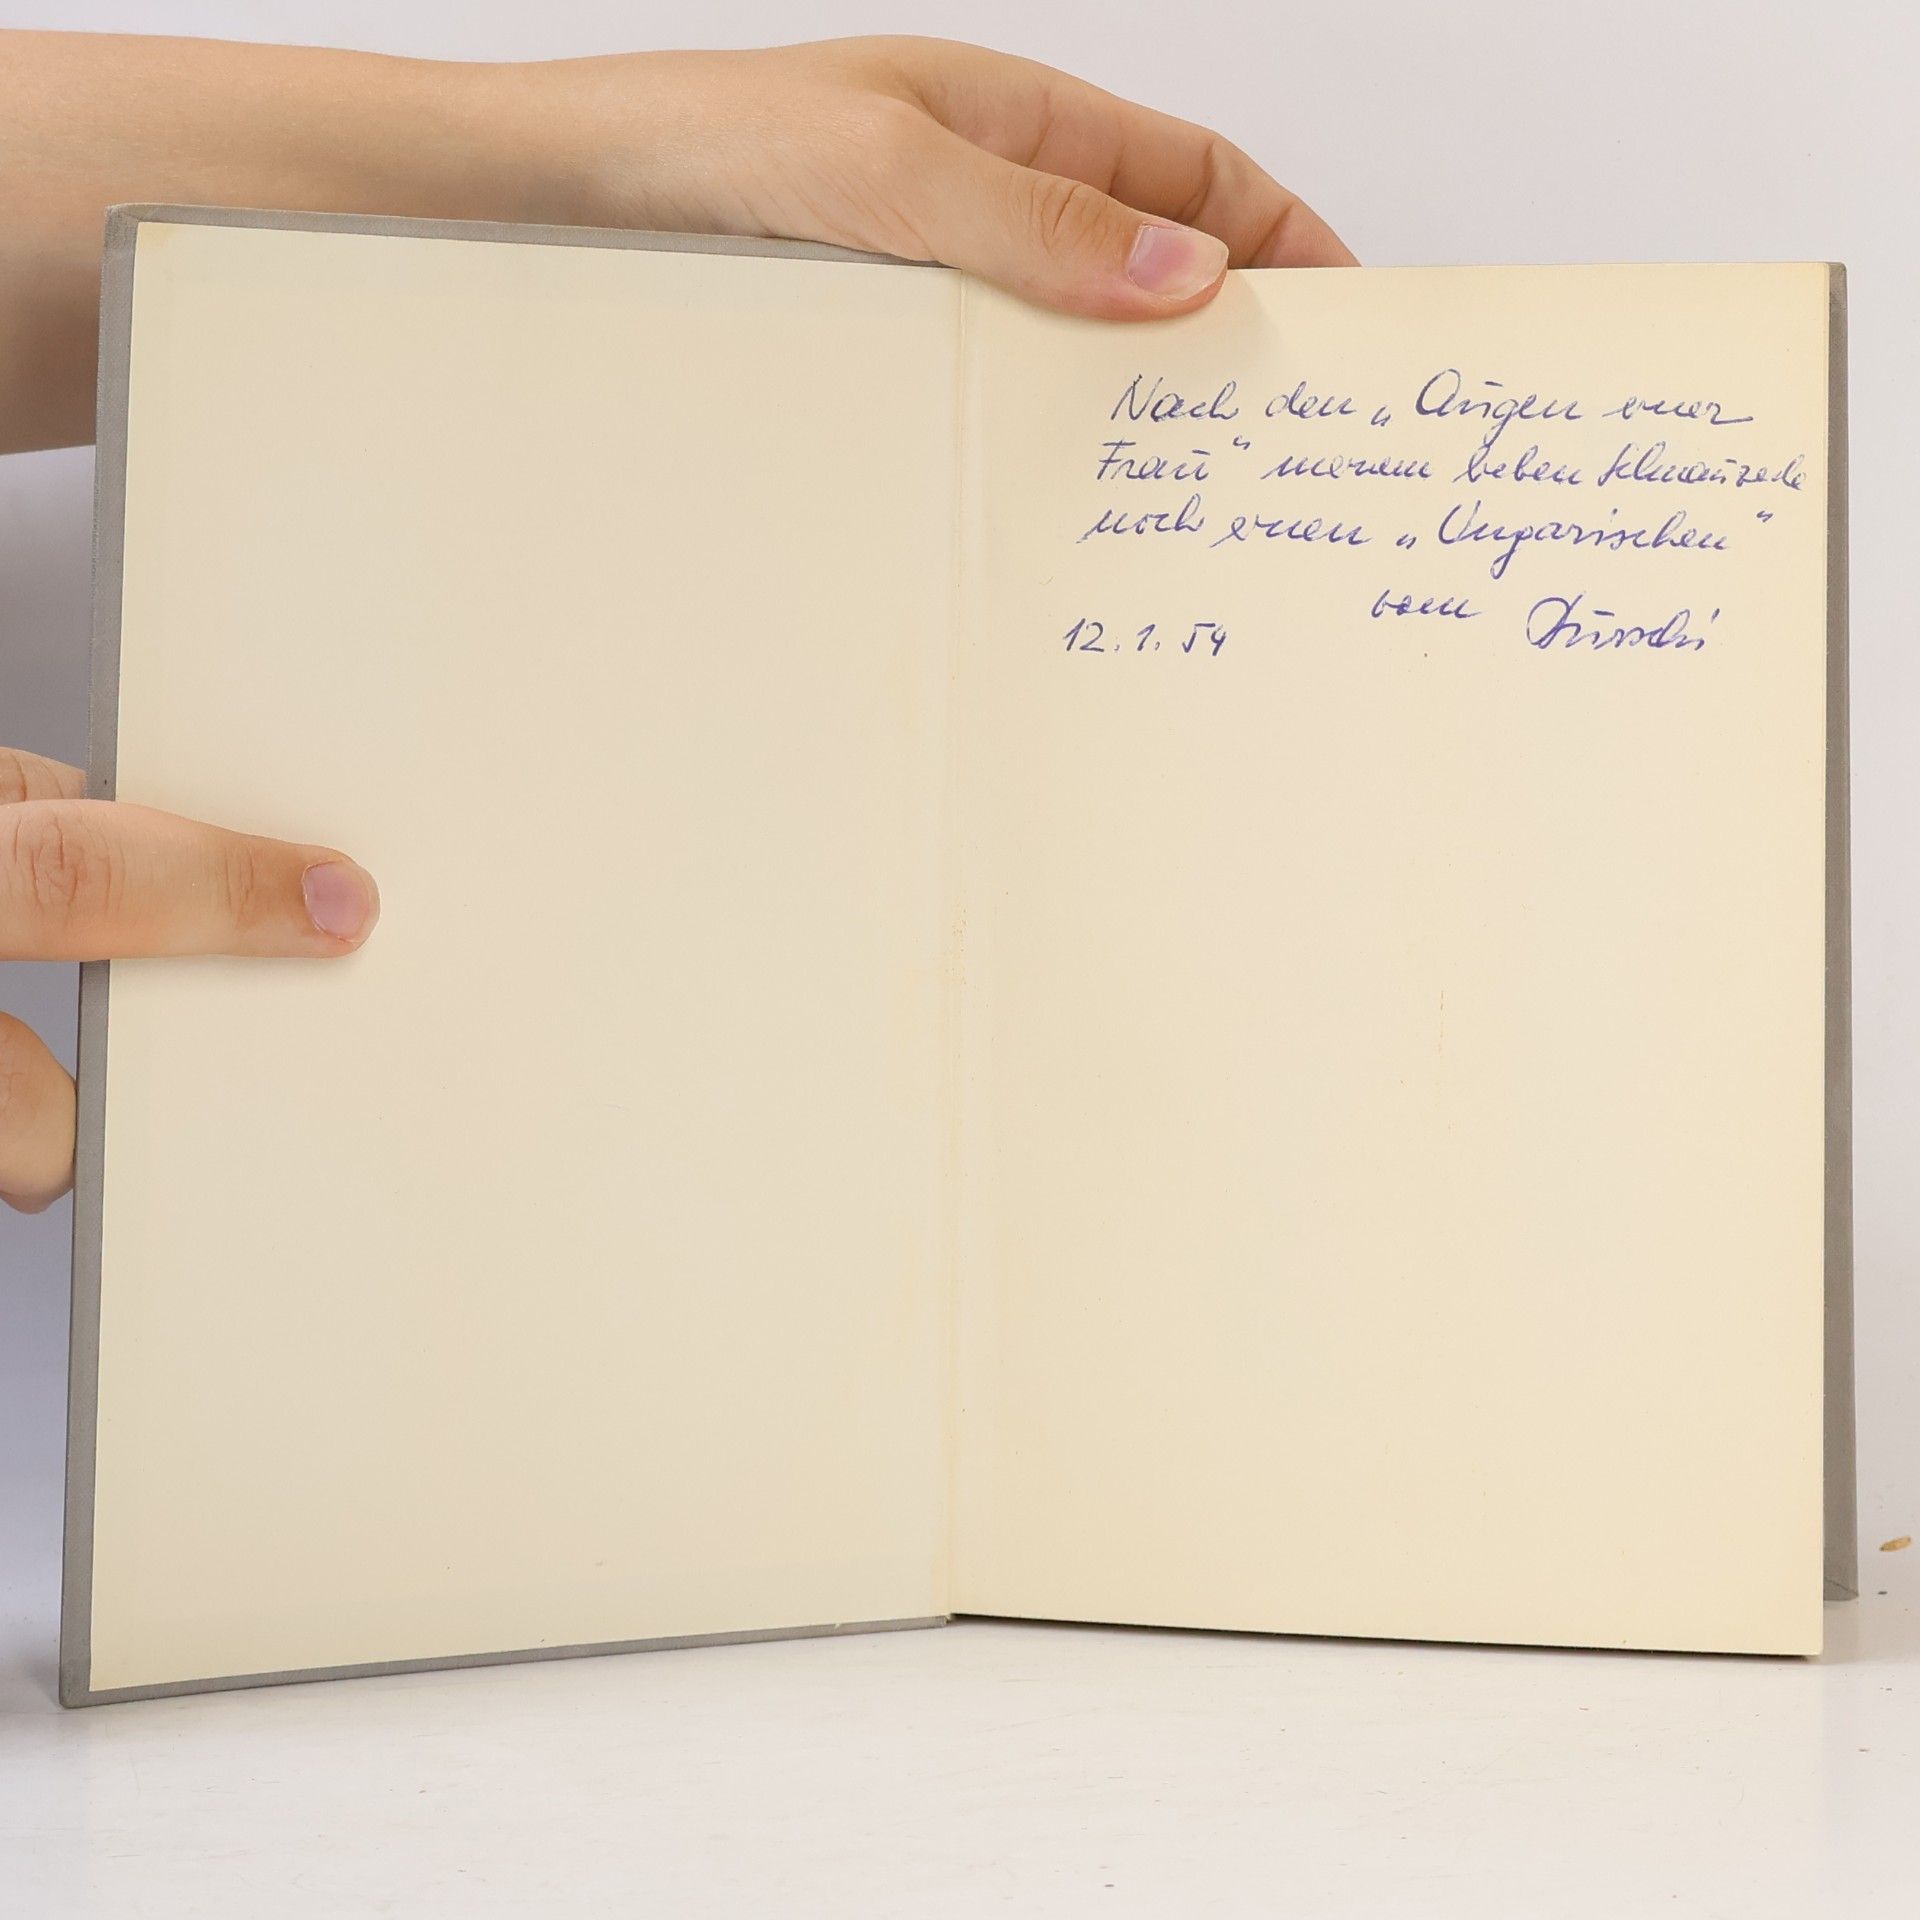 Nach den „Augen einer
Frau" meinem lieben Schnauzerle
noch einen „Ungarischen"
vom
12.1.54